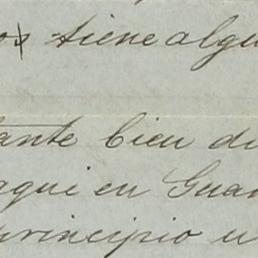 os tiene algu
ante bien di
aqui en Gua
principio u